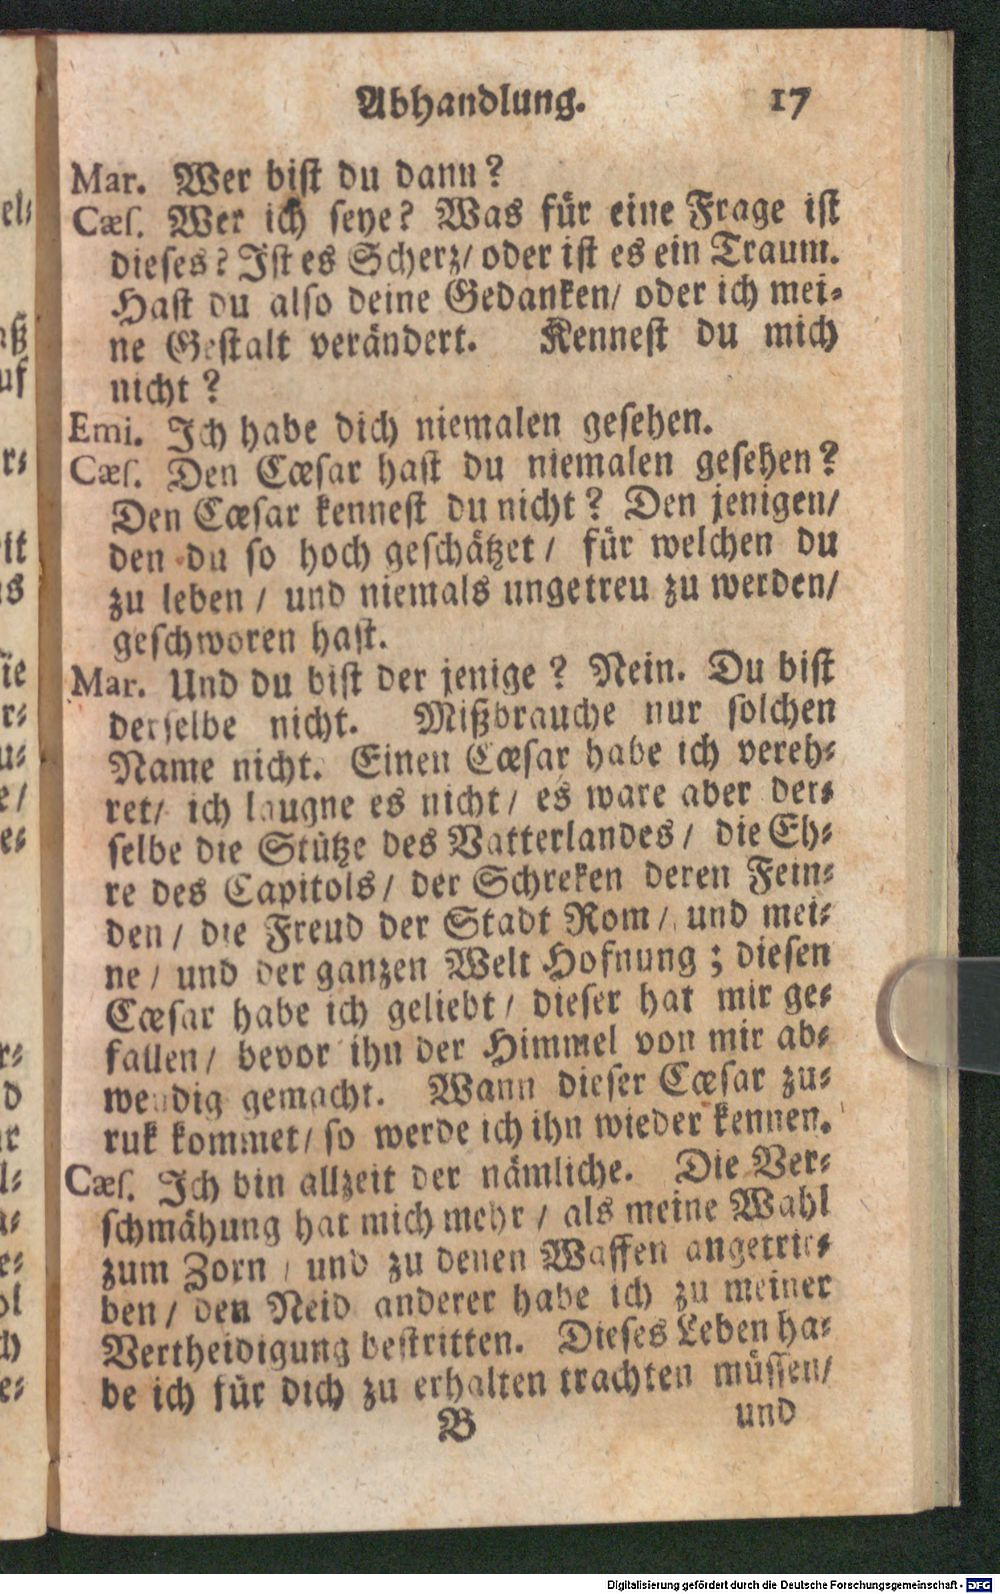 Abhandlung. 17
Mar. Wer bist du dann?
Cæs. Wer ich seye? Was für eine Frage ist
dieses? Ist es Scherz/ oder ist es ein Traum.
Hast du also deine Gedanken/ oder ich mei-
ne Gestalt verändert. Kennest du mich
nicht?
Emi. Ich habe dich niemalen gesehen.
Cæs. Den Cæsar hast du niemalen gesehen?
Den Cæsar kennest du nicht? Den jenigen/
den du so hoch geschätzet/ für welchen du
zu leben/ und niemals ungetreu zu werden/
geschworen hast.
Mar. Und du bist der jenige? Nein. Du bist
derselbe nicht. Mißbrauche nur solchen
Name nicht. Einen Cæsar habe ich vereh-
ret/ ich laugne es nicht/ es ware aber der-
selbe die Stütze des Vatterlandes/ die Eh-
re des Capitols/ der Schreken deren Fein-
den/ die Freud der Stadt Rom/ und mei-
ne/ und der ganzen Welt Hofnung; diesen
Cæsar habe ich geliebt/ dieser hat mir ge-
fallen/ bevor ihn der Himmel von mir ab-
wendig gemacht. Wann dieser Cæsar zu-
ruk kommet/ so werde ich ihn wieder kennen.
Cæs. Ich bin allzeit der nämliche. Die Ver-
schmähung hat mich mehr/ als meine Wahl
zum Zorn/ und zu denen Waffen angetrie-
ben/ den Neid anderer habe ich zu meiner
Vertheidigung bestritten. Dieses Leben ha-
be ich für dich zu erhalten trachten müssen/
B und
Digitalisierung gefördert durch die Deutsche Forschungsgemeinschaft - DFG